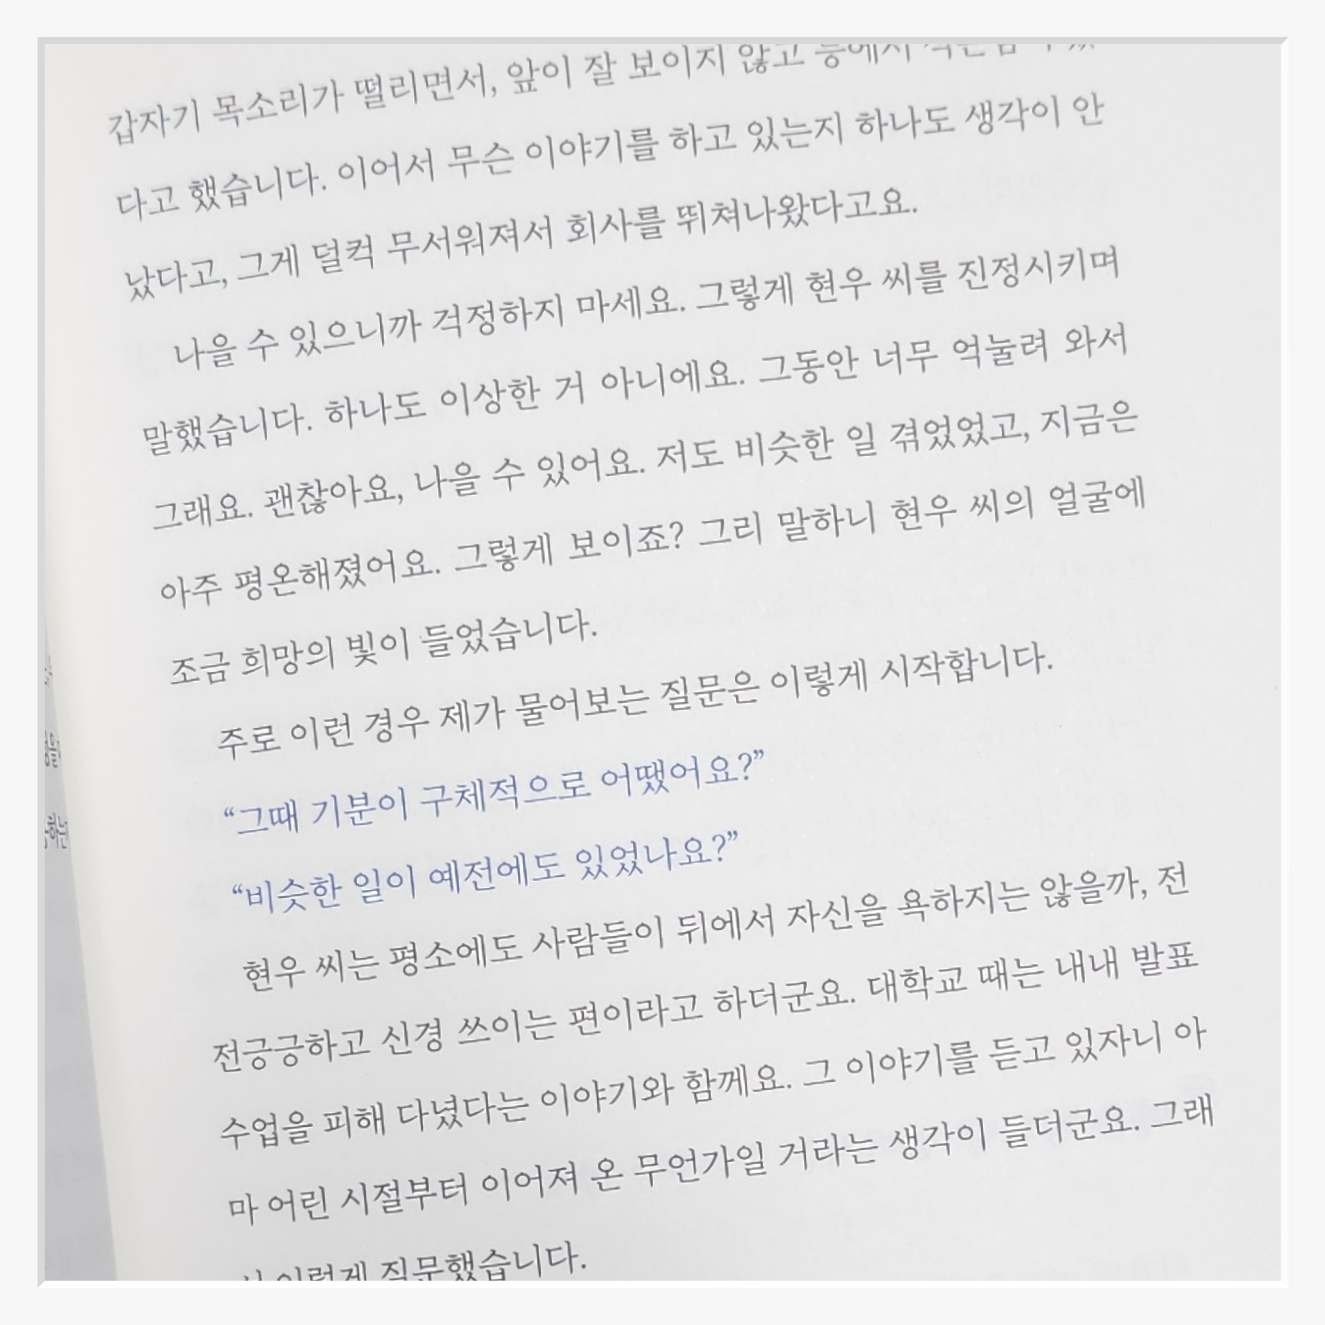 갑자기 목소리가 떨리면서, 앞이 잘 보이지 않고
다고 했습니다. 이어서 무슨 이야기를 하고 있는지 하나도 생각이 안
났다고, 그게 덜컥 무서워져서 회사를 뛰쳐나왔다고요.
나을 수 있으니까 걱정하지 마세요. 그렇게 현우 씨를 진정시키며
말했습니다. 하나도 이상한 거 아니에요. 그동안 너무 억눌려 와서
그래요. 괜찮아요, 나을 수 있어요. 저도 비슷한 일 겪었었고, 지금은
아주 평온해졌어요. 그렇게 보이죠? 그리 말하니 현우 씨의 얼굴에
조금 희망의 빛이 들었습니다.
주로 이런 경우 제가 물어보는 질문은 이렇게 시작합니다.
“그때 기분이 구체적으로 어땠어요?”
“비슷한 일이 예전에도 있었나요?”
현우 씨는 평소에도 사람들이 뒤에서 자신을 욕하지는 않을까, 전
전긍긍하고 신경 쓰이는 편이라고 하더군요. 대학교 때는 내내 발표
수업을 피해 다녔다는 이야기와 함께요. 그 이야기를 듣고 있자니 아
마 어린 시절부터 이어져 온 무언가일 거라는 생각이 들더군요. 그래
이렇게 질문했습니다.